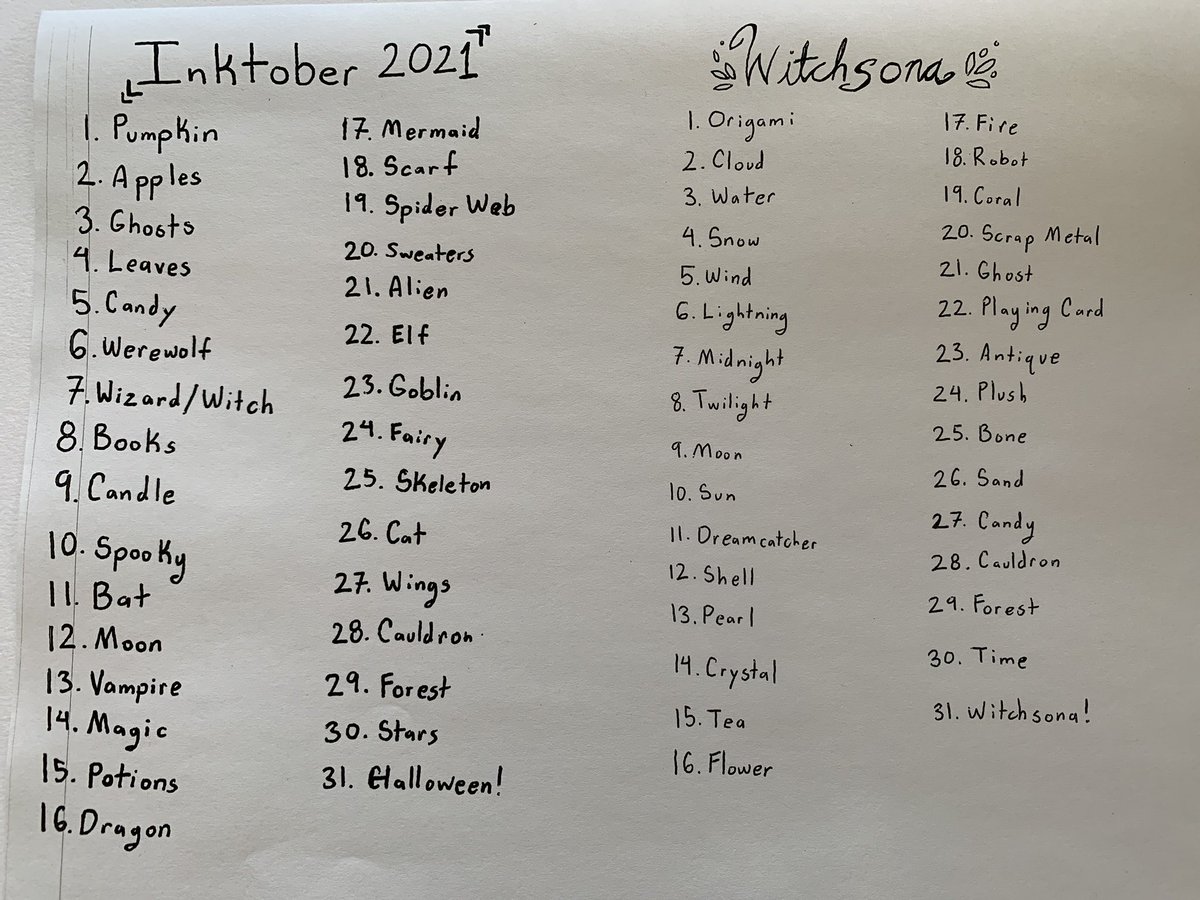 Inktober 2021
1. Pumpkin
2. Apples
3. Ghosts
4. Leaves
5. Candy
6. Werewolf
7. Wizard/Witch
8. Books
9. Candle
10. Spooky
11. Bat
12. Moon
13. Vampire
14. Magic
15. Potions
16. Dragon
17. Mermaid
18. Scarf
19. Spider Web
20. Sweaters
21. Alien
22. Elf
23. Goblin
24. Fairy
25. Skeleton
26. Cat
27. Wings
28. Cauldron
29. Forest
30. Stars
31. Halloween!
Witchsona
1. Origami
2. Cloud
3. Water
4. Snow
5. Wind
6. Lightning
7. Midnight
8. Twilight
9. Moon
10. Sun
11. Dreamcatcher
12. Shell
13. Pearl
14. Crystal
15. Tea
16. Flower
17. Fire
18. Robot
19. Coral
20. Scrap Metal
21. Ghost
22. Playing Card
23. Antique
24. Plush
25. Bone
26. Sand
27. Candy
28. Cauldron
29. Forest
30. Time
31. Witchsona!